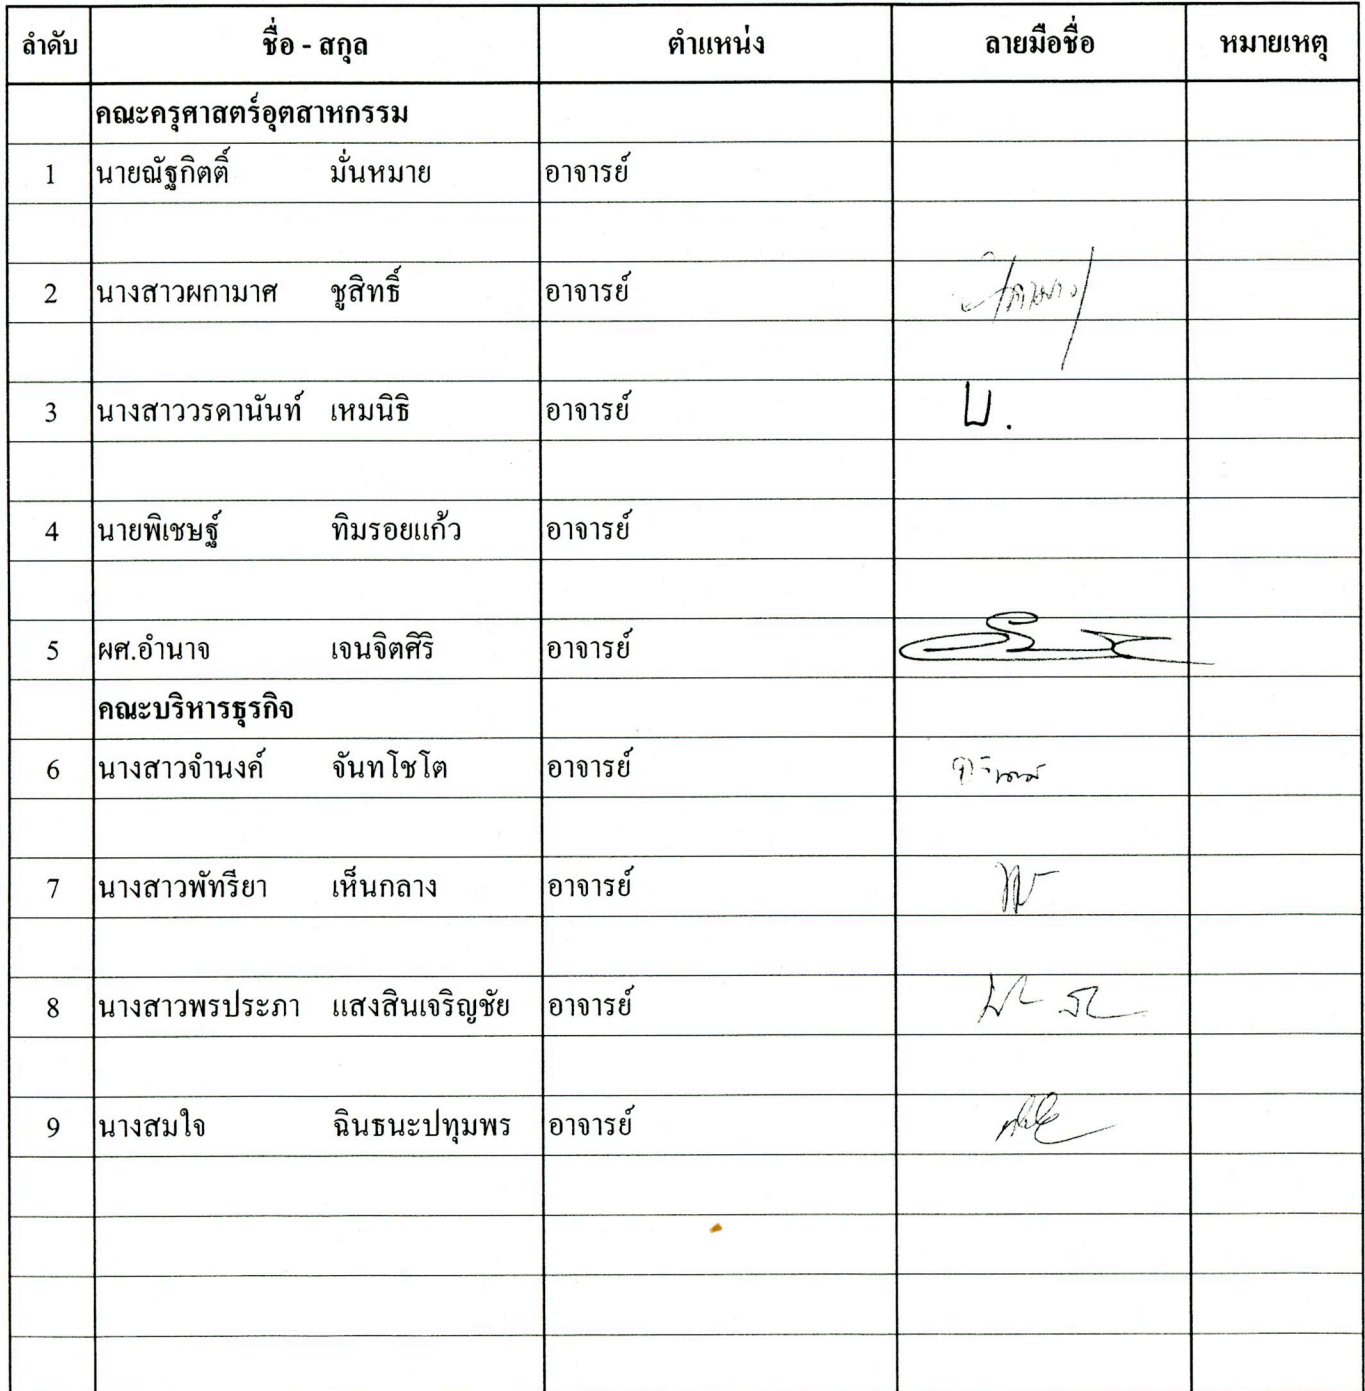 ลำดับ ชื่อ - สกุล ตำแหน่ง ลายมือชื่อ หมายเหตุ
คณะครุศาสตร์อุตสาหกรรม
1 นายณัฐกิตติ์ มั่นหมาย อาจารย์
2 นางสาวผกามาศ ชูสิทธิ์ อาจารย์
3 นางสาววรดานันท์ เหมนิธิ อาจารย์
4 นายพิเชษฐ์ ทิมรอยแก้ว อาจารย์
5 ผศ.อำนาจ เจนจิตศิริ อาจารย์
คณะบริหารธุรกิจ
6 นางสาวจำนงค์ จันทโชโต อาจารย์
7 นางสาวพัทรียา เห็นกลาง อาจารย์
8 นางสาวพรประภา แสงสินเจริญชัย อาจารย์
9 นางสมใจ ฉินธนะปทุมพร อาจารย์